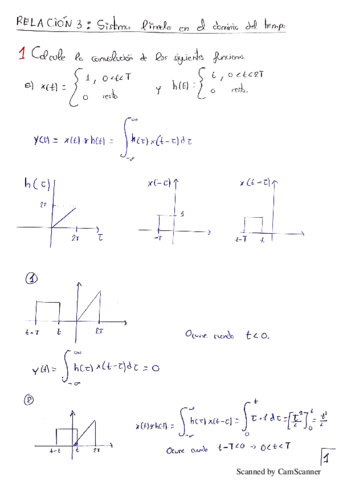 RELACIÓN 3: Sistemas lineales en el dominio del tiempo
1 Calcule la convolución de las siguientes funciones
a) x(t) = { 1, 0<t<T
0 resto
y h(t) = { t, 0<t<2T
0 resto.
y(t) = x(t) * h(t) = ∫_{-∞}^{∞} h(τ) x(t-τ) dτ
h(τ) x(-τ) x(t-τ)
2T 1
2T τ -T t-T t
①
t-T t 2T
Ocurre cuando t<0.
y(t) = ∫_{-∞}^{∞} h(τ) x(t-τ) dτ = 0
②
x(t)*h(t) = ∫_{-∞}^{∞} h(τ) x(t-τ) = ∫_0^t τ·1 dτ = [τ²/2]_0^t = t²/2
t-T t 2T
Ocurre cuando t-T<0 → 0<t<T
1
Scanned by CamScanner